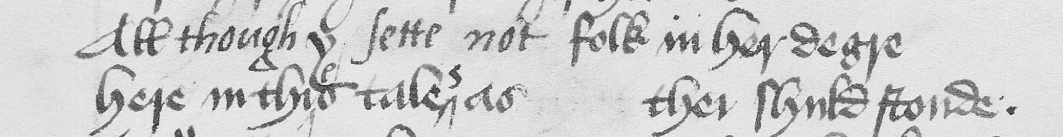 All though I sette not folk in her degre
here in this tales as ther shuld stonde.